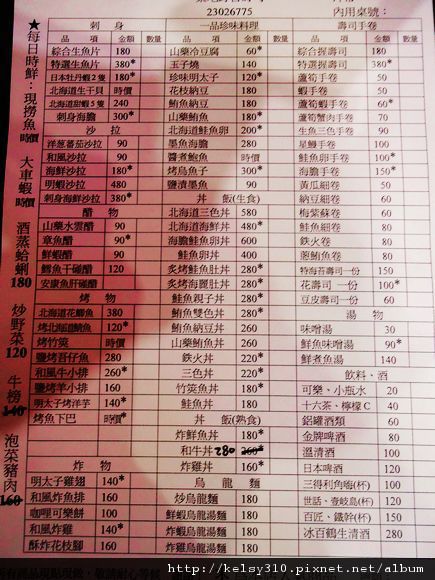 23026775
內用桌號：
★每日時鮮：現撈魚 時價
大車蝦 時價
酒蒸蛤蜊 180
炒野菜 120
牛榜 140
泡菜豬肉 160
刺身
品項 金額 數量
綜合生魚片 180
特選生魚片 380*
日本牡丹蝦2隻 180*
北海道生干貝 時價
北海道甜蝦5隻 240
刺身海膽 300*
沙拉
洋蔥蕃茄沙拉 90
和風沙拉 90
海鮮沙拉 180*
明蝦沙拉 180
刺身海鮮沙拉 380*
醋物
山藥水雲醋 90
章魚醋 90*
鮮蝦醋 90
鱈魚干碰醋 120
安康魚肝碰醋
烤物
北海道花鯽魚 380
烤北海道鯖魚 120*
烤竹筴 時價
鹽烤吾仔魚 280
和風牛小排 260*
鹽烤羊小排 160
明太子烤洋芋 140*
烤魚下巴 時價*
炸物
明太子雞翅 140*
和風炸魚排 160
咖哩可樂餅 100
和風炸雞 100*
酥炸花枝腳 160
一品珍味料理
品項 金額 數量
山藥冷豆腐 60*
玉子燒 140
珍味明太子 120*
花枝納豆 180
鮪魚納豆 180
山藥鮪魚 180
北海道鮭魚卵 200*
墨魚海膽 280
醬煮鮑魚 時價
烤烏魚子 300*
鹽漬墨魚 90
丼飯(生食)
北海道三色丼 580
北海道海鮮丼 480*
海膽鮭魚卵丼 500
鮭魚卵丼 400
炙烤鮭魚肚丼 280*
炙烤海鱺肚丼 280*
鮭魚親子丼 280*
鮪魚雙色丼 280*
鮪魚納豆丼 260
山藥鮪魚丼 260
鐵火丼 220*
三色丼 220*
竹筴魚丼 180*
鮭魚丼 180*
丼飯(熟食)
炸鮮魚丼 180*
和牛丼 280 260*
炸雞丼 160*
烏龍麵
炒烏龍麵 180
鮮蝦烏龍湯麵 180
炸蝦烏龍湯麵 180
炸雞烏龍湯麵 180
壽司手卷
品項 金額 數量
綜合握壽司 180
特選握壽司 380*
蘆筍手卷 50
蝦手卷 50
蘆筍蝦手卷 60*
蘆筍蟹肉手卷 70
生魚三色手卷 90
星鰻手卷 100
鮭魚卵手卷 100*
海膽手卷 150*
黃瓜細卷 50
納豆細卷 60
梅紫蘇卷 60
鮭魚細卷 90
鐵火卷 90
蔥鮪魚卷 90
特海苔壽司一份 150
花壽司 一份 100*
豆皮壽司一份 60
湯物
味噌湯 30
鮮魚味噌湯 90*
鮮煮魚湯 140
飲料、酒
可樂、小瓶水 20
十六茶、檸檬C 40
鋁罐酒類 60
金牌啤酒 80
溫清酒 80
日本啤酒 80
三得利角嗨(杯) 100
世話、壹岐島(杯) 120
百匠、鐵幹(杯) 150
冰百鶴生清酒 380
http://kelsy310.pixnet.net/album